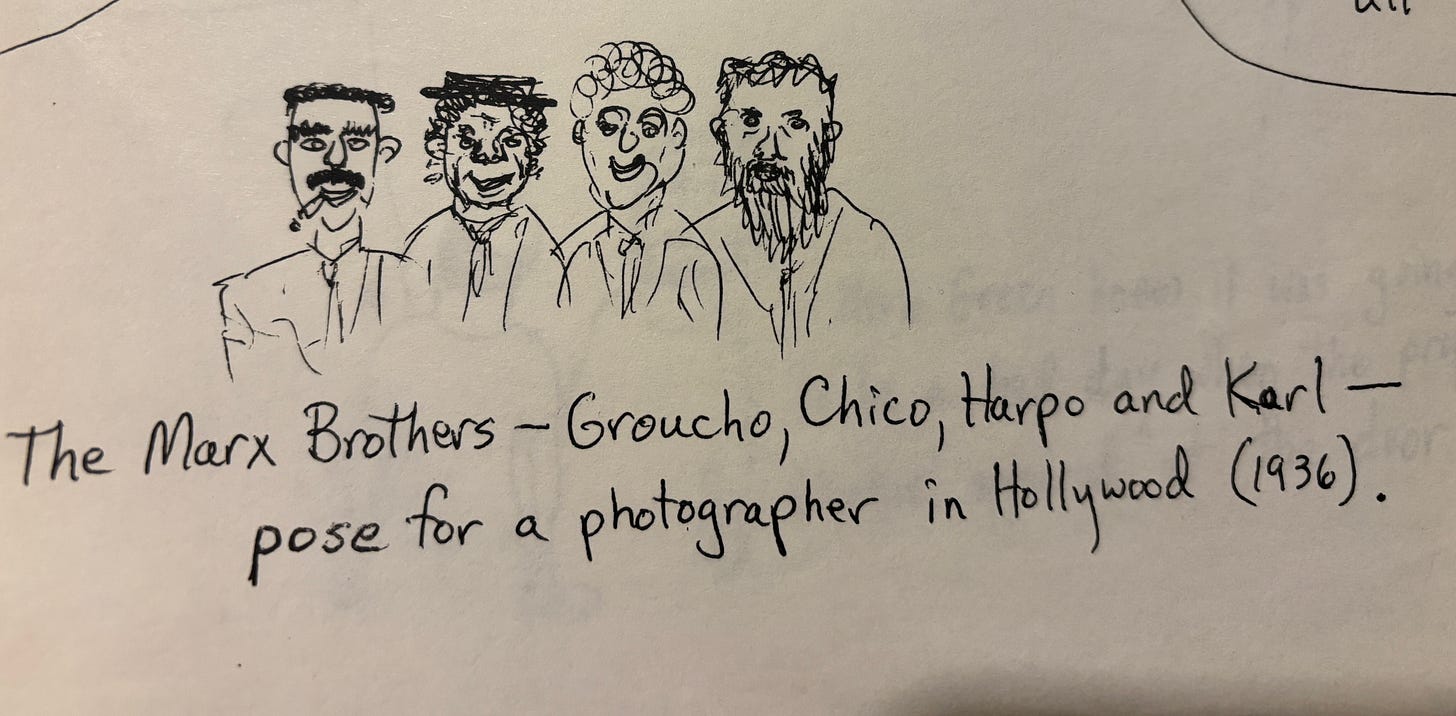 all
The Marx Brothers – Groucho, Chico, Harpo and Karl –
pose for a photographer in Hollywood (1936).